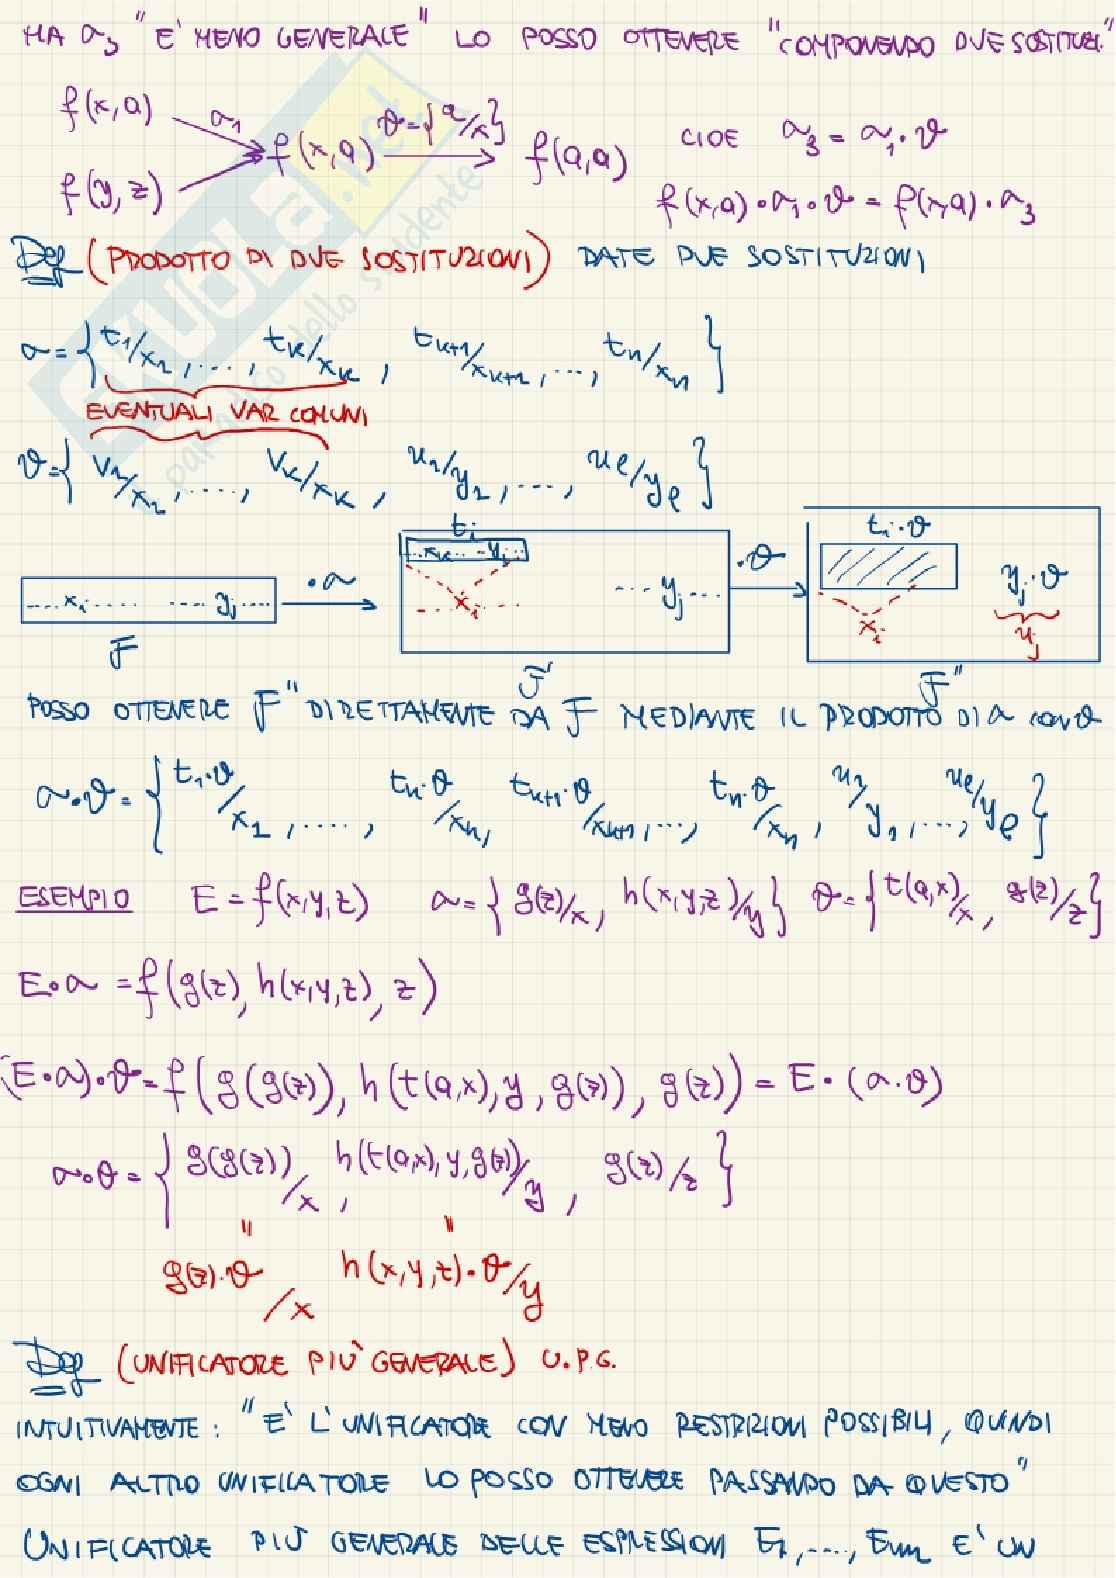 MA σ₃ "E' MENO GENERALE" LO POSSO OTTENERE "COMPONENDO DUE SOSTITUZ."
f(x,a) σ₁ f(x,a) ϑ={a/x} f(a,a) CIOE σ₃ = σ₁·ϑ
f(y,z) f(x,a)·σ₁·ϑ = f(x,a)·σ₃
Def (PRODOTTO DI DUE SOSTITUZIONI) DATE DUE SOSTITUZIONI
σ = { t₁/x₁, ...., tₖ/xₖ, tₖ₊₁/xₖ₊₁, ..., tₙ/xₙ }
EVENTUALI VAR COMUNI
ϑ = { v₁/x₁, ...., vₖ/xₖ, u₁/y₁, ..., uₗ/yₗ }
tᵢ tᵢ·ϑ
....xᵢ..... ....yⱼ.... ·σ ..xₖ.. ..yⱼ.. xᵢ ...yⱼ... ·ϑ xᵢ yⱼ·ϑ
uⱼ
F F' F"
POSSO OTTENERE F" DIRETTAMENTE DA F MEDIANTE IL PRODOTTO DI σ con ϑ
σ·ϑ = { t₁·ϑ/x₁, ...., tₖ·ϑ/xₖ, tₖ₊₁·ϑ/xₖ₊₁, ..., tₙ·ϑ/xₙ, u₁/y₁, ..., uₗ/yₗ }
ESEMPIO E = f(x,y,z) σ = { g(z)/x, h(x,y,z)/y } ϑ = { t(a,x)/x, g(z)/z }
E·σ = f(g(z), h(x,y,z), z)
(E·σ)·ϑ = f(g(g(z)), h(t(a,x), y, g(z)), g(z)) = E·(σ·ϑ)
σ·ϑ = { g(g(z))/x, h(t(a,x), y, g(z))/y, g(z)/z }
" "
g(z)·ϑ/x h(x,y,z)·ϑ/y
Def (UNIFICATORE PIÙ GENERALE) U.P.G.
INTUITIVAMENTE: "E' L'UNIFICATORE CON MENO RESTRIZIONI POSSIBILI, QUINDI
OGNI ALTRO UNIFICATORE LO POSSO OTTENERE PASSANDO DA QUESTO"
UNIFICATORE PIÙ GENERALE DELLE ESPRESSIONI E₁, ...., Eₘ E' UN